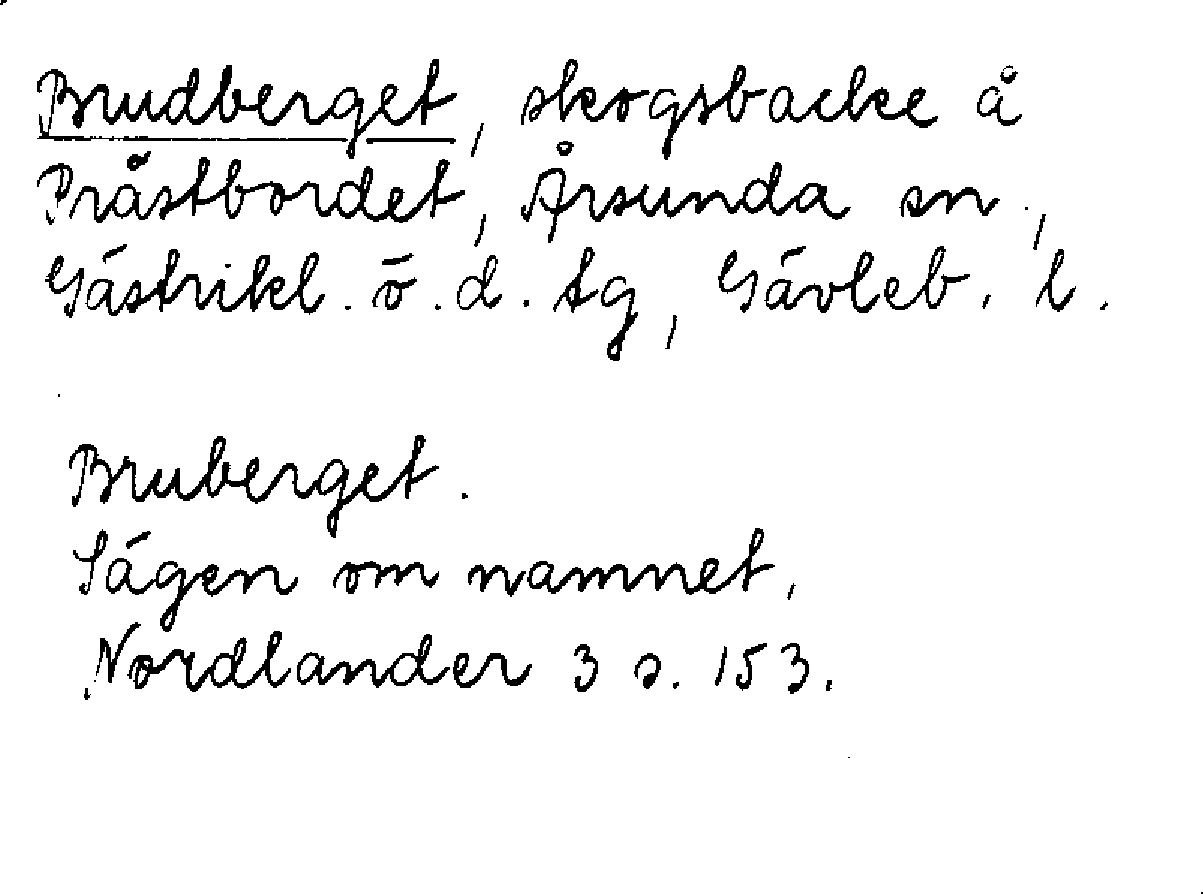 Brudberget, skogsbacke å
Prästbordet, Årsunda sn.,
Gästrikl. ö. d. tg, Gävleb. l.
Bruberget.
Sägen om namnet,
Nordlander 3 s. 153.